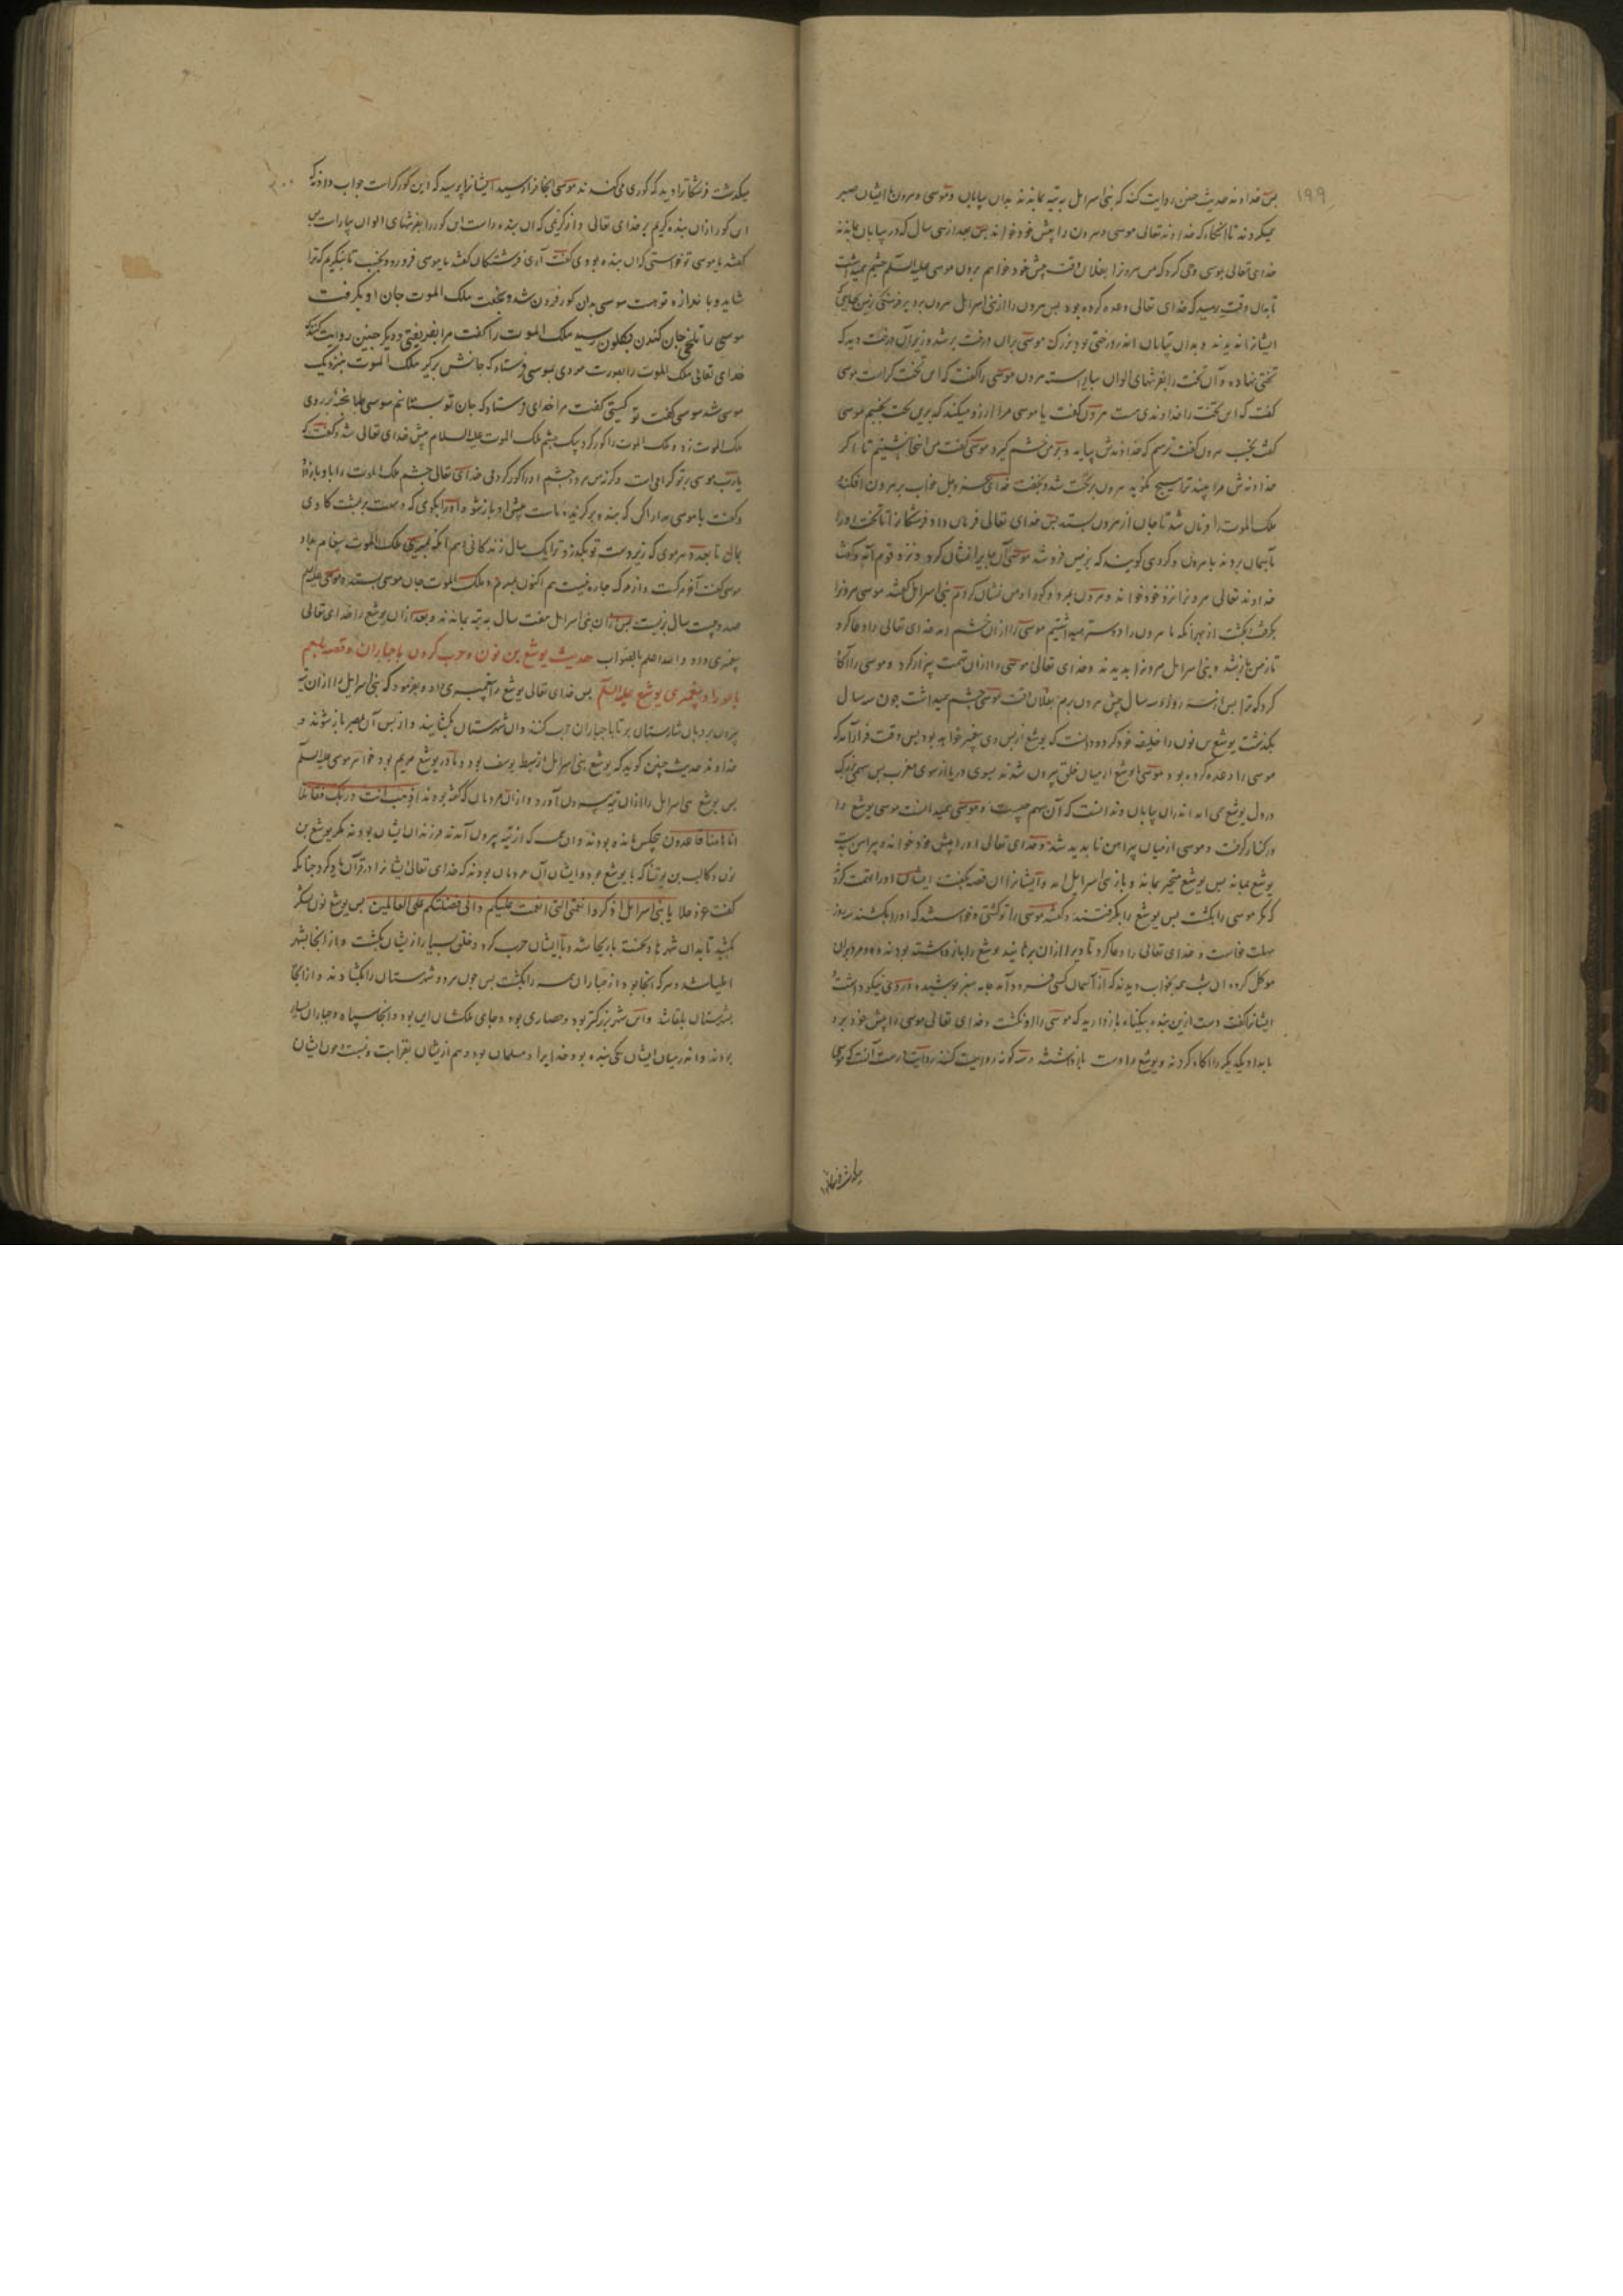 ۱۹۹
بس خداوند حدیث چنین روایت کند که بنی اسرایل به تیه بماندند بدان بیابان و موسی و هرون با ایشان صبر
میکردند تا آنگاه که خداوند تعالی موسی و هرون را پیش خود خواند بس بعد از سی سال که در بیابان بماندند
خدای تعالی بموسی وحی کرد که من هرونرا بفلان وقت پیش خود خواهم بردن موسی علیه السلم چشم میداشت
تا بدان وقت رسید که خدای تعالی وعده کرده بود بس هرون را از بنی اسرایل بیرون برد
ایشانرا ندیدند و بدان بیابان اندر درختی بود بزرک موسی بران درخت برشد و زیر آن درخت دید که
تختی نهاده و آن تخت را بفرشهای الوان بیاراسته هرون موسی را کفت که این تخت کراست موسی
کفت که این تخت را خداوندی هست هرون کفت یا موسی مرا آرزو میکند که برین تخت بخسبم موسی
کفت بخسب هرون کفت ترسم که خداوندش بیاید و بر من خشم کیرد موسی کفت من اینجا بنشینم تا اکر
خداوندش مرا بیند ترا هیچ نکوید هرون بر تخت شد و بخفت خدای عز و جل خواب بر هرون افکند و
ملک الموت را فرمان شد تا جان از هرون بستد بس خدای تعالی فرمان داد فرشتکانرا تا تخت او را
بآسمان بردند با هرون و کروهی کویند که بزمین فرو شد موسی آن جایرا نشان کرد و نزد قوم آمد و کفت
خداوند تعالی هرونرا نزد خود خواند و هرون بمرد و کور او من نشان کردم بنی اسرایل کفتند موسی هرونرا
ببرد و بکشت از بهر آنکه ما هرون را دوستر میداشتیم موسی را ازان خشم آمد خدای تعالی را دعا کرد
تا زمین باز شد و بنی اسرایل هرونرا بدیدند و خدای تعالی موسی را ازان تهمت بیزار کرد و موسی را آگاه
کرد که ترا بس از سه روز و سه سال پیش هرون برم بفلان وقت موسی چشم میداشت چون سه سال
بکذشت یوشع بن نون را خلیفه خود کرد و دانست که یوشع از بس وی پیغمبر خواهد بود بس وقت فراز آمد که
موسی را وعده کرده بود موسی با یوشع از میان خلق بیرون شدند بسوی دریا از سوی مغرب بس سهمی بزرک
در دل یوشع می آمد اندران بیابان و ندانست که آن سهم چیست و موسی میدانست موسی یوشع را
در کنار کرفت و موسی از میان پیراهن ناپدید شد و خدای تعالی او را پیش خود خواند و پیراهن بدست
یوشع بماند بس یوشع متحیر بماند و باز بنی اسرایل آمد و ایشانرا آن قصه بکفت ایشان او را تهمت کردند
که مکر موسی را بکشت بس یوشع را بکرفتند و کفتند موسی را تو کشتی و خواستند که او را بکشند سه روز
مهلت خواست و خدای تعالی را دعا کرد تا ویرا ازان برهانید یوشع را باز داشته بودند و ده مرد بران
موکل کرده آن شب همه بخواب دیدند که از آسمان کسی فرود آمد جامه سبز پوشیده و روی نیکو داشت
ایشانرا کفت دست ازین بنده بیکناه باز دارید که موسی را او نکشت و خدای تعالی موسی را پیش خود برد
بامداد یکدیکر را آگاه کردند و یوشع را دست بازداشتند و سه کونه روایت کنند روایت درست آنست که موسی
میکذشت فرشتکانرا دید که کوری می کندند موسی آنجا فراز رسید ایشانرا پرسید که این کور کراست جواب دادند که
این کور ازان بنده کریم بر خدای تعالی و از کریمی که آن بنده راست این کور را بفرشهای الوان بیاراست بس
کفتند یا موسی تو خواستی که آن بنده بودی کفت آری فرشتکان کفتند یا موسی فرو رو و بخسب تا بنکریم که ترا
شاید و با اندازه تو هست موسی بدان کور فرون شد و بخفت ملک الموت جان او بکرفت
موسی را تلخی جان کندن بکلو رسید ملک الموت را کفت مرا بفریفتی و دیکر چنین روایت کنند که
خدای تعالی ملک الموت را بصورت مردی بموسی فرستاد که جانش برکیر ملک الموت بنزدیک
موسی شد موسی کفت تو کیستی کفت مرا خدای فرستاد که جان تو بستانم موسی طپانچه بر روی
ملک الموت زد و ملک الموت را کور کرد بیک چشم ملک الموت علیه السلام پیش خدای تعالی شد و کفت که
یا رب موسی بر تو کرامیست و کرنه من هر دو چشم او را کور کردمی خدای تعالی چشم ملک الموت را باو باز داد
و کفت یا موسی پیش او باز شو و او را بکوی که دست بر پشت کاوی
بمال تا بعدد هر موی که زیر دست تو بکذرد ترا یک سال زندکانی دهم ملک الموت پیغام بداد
موسی کفت آخر مرکست و از مرک چاره نیست هم اکنون بمیرم ملک الموت جان موسی بستد و موسی علیه السلم
صد و بیست سال بزیست بس ازان بنی اسرایل هفت سال به تیه بماندند و بعد ازان یوشع را خدای تعالی
پیغمبری داد والله اعلم بالصواب حدیث یوشع بن نون و حرب کردن با جباران و قصه بلعم
باعورا و پیغمبری یوشع علیه السلم بس خدای تعالی یوشع را پیغمبری داد و بفرمود که بنی اسرایل را ازان تیه
بیرون بر و بدان شارستان بر تا با جباران حرب کنند و آن شهرستان بکشایند و از بس آن بمصر باز شوند و
خداوند حدیث چنین کوید که یوشع بنی اسرایل از سبط یوسف بود و مادر یوشع مریم بود خواهر موسی علیه السلم
بس یوشع بنی اسرایل را ازان تیه بیرون آورد و ازان مردمان که کفته بودند اذهب انت و ربک فقاتلا
انا هاهنا قاعدون هیچکس نمانده بودند و آن همه که از تیه بیرون آمدند فرزندان ایشان بودند مکر یوشع بن
نون و کالب بن یوفنا که با یوشع بود و ایشان آن مردمان بودند که خدای تعالی ایشانرا در قرآن یاد کرد چنانکه
کفت عز و علا یا بنی اسرایل اذکروا نعمتی التی انعمت علیکم و انی فضلتکم علی العالمین بس یوشع نون لشکر
بکشید تا بدان شهرها و نخست باریحا شد و با ایشان حرب کرد و خلق بسیار از یشان بکشت و از انجا بشهر
ایلیا شد و هر که آنجا بود از جباران همه را بکشت بس چون مردو شهرستان را بکشادند و از انجا
بشهرستان بلقا شد و این شهر بزرکتر بود و حصاری بود و جای ملکشان این بود و آنجا سپاه و جباران بسیار
بودند و اندر میان ایشان یکی بنده بود خدایرا و مسلمان بود و هم از یشان بقرابت و نسبت چون ایشان